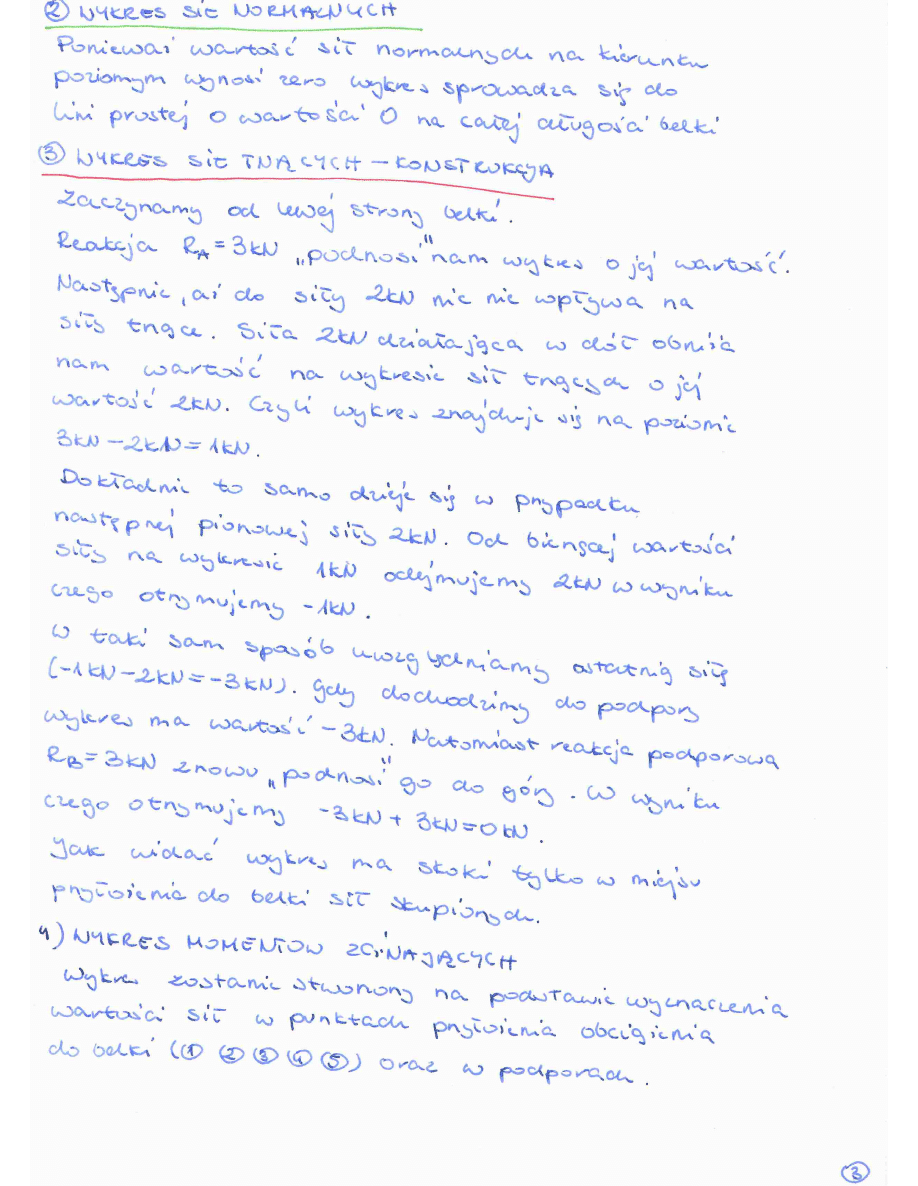 ② WYKRES SIŁ NORMALNYCH
Ponieważ wartość sił normalnych na kierunku
poziomym wynosi zero wykres sprowadza się do
lini prostej o wartości 0 na całej długości belki
③ WYKRES SIŁ TNĄCYCH – KONSTRUKCJA
Zaczynamy od lewej strony belki.
Reakcja RA = 3kN „podnosi" nam wykres o jej wartość.
Następnie, aż do siły 2kN nic nie wpływa na
siły tnące. Siła 2kN działająca w dół obniża
nam wartość na wykresie sił tnących o jej
wartość 2kN. Czyli wykres znajduje się na poziomie
3kN – 2kN = 1kN.
Dokładnie to samo dzieje się w przypadku
następnej pionowej siły 2kN. Od bieżącej wartości
siły na wykresie 1kN odejmujemy 2kN w wyniku
czego otrzymujemy -1kN.
W taki sam sposób uwzględniamy ostatnią siłę
(-1kN – 2kN = -3kN). Gdy dochodzimy do podpory
wykres ma wartość -3kN. Natomiast reakcja podporowa
RB = 3kN znowu „podnosi" go do góry. W wyniku
czego otrzymujemy -3kN + 3kN = 0kN.
Jak widać wykres ma skoki tylko w miejscu
przyłożenia do belki sił skupionych.
4) WYKRES MOMENTÓW ZGINAJĄCYCH
Wykres zostanie stworzony na podstawie wyznaczenia
wartości sił w punktach przyłożenia obciążenia
do belki (① ② ③ ④ ⑤) oraz w podporach.
③